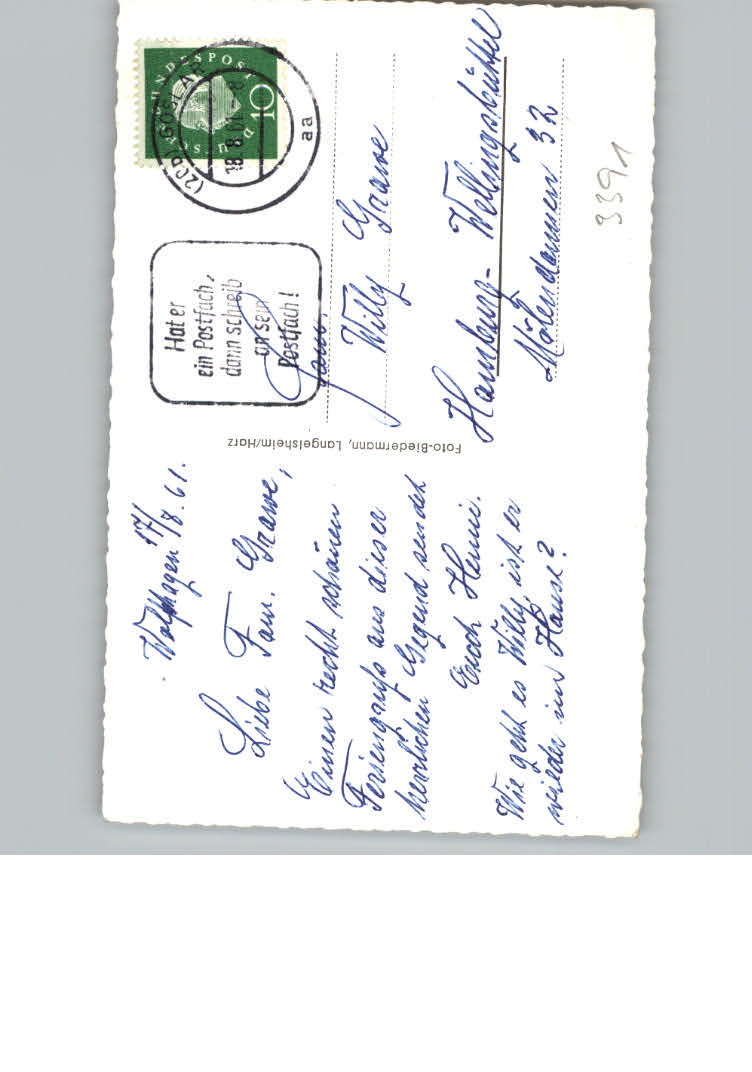 Wolfshagen 17/8.61.
Liebe Fam. Grawe,
Einen recht schönen
Feriengruß aus dieser
herrlichen Gegend sendet
Euch Henni.
Wie geht es Willy, ist er
wieder im Hause?
Foto-Biedermann, Langelsheim/Harz
DEUTSCHE BUNDESPOST
10
(20b) GOSLAR
18.8.61
aa
Hat er
ein Postfach,
dann schreib
an sein
Postfach!
Fam.
Willy Grawe
Hamburg-Wellingsbüttel
32
3391